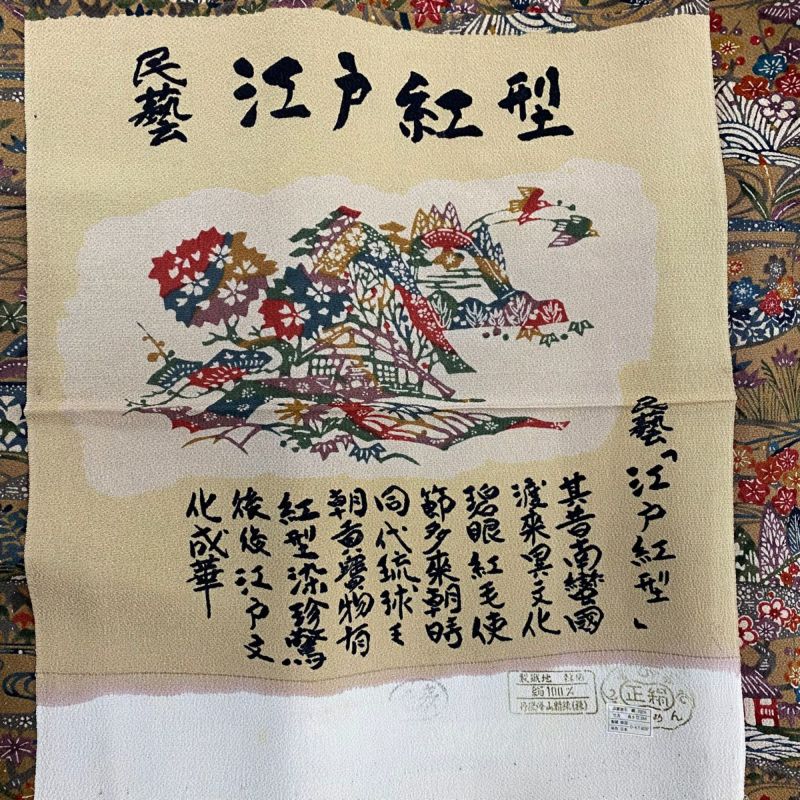 民藝 江戸紅型
民藝「江戸紅型」
其昔南蠻國
渡来異文化
碧眼紅毛使
節多来朝時
同代琉球も
朝貢貢物有
紅型染珍驚
後後江戸文
化成華
絹100%
正絹